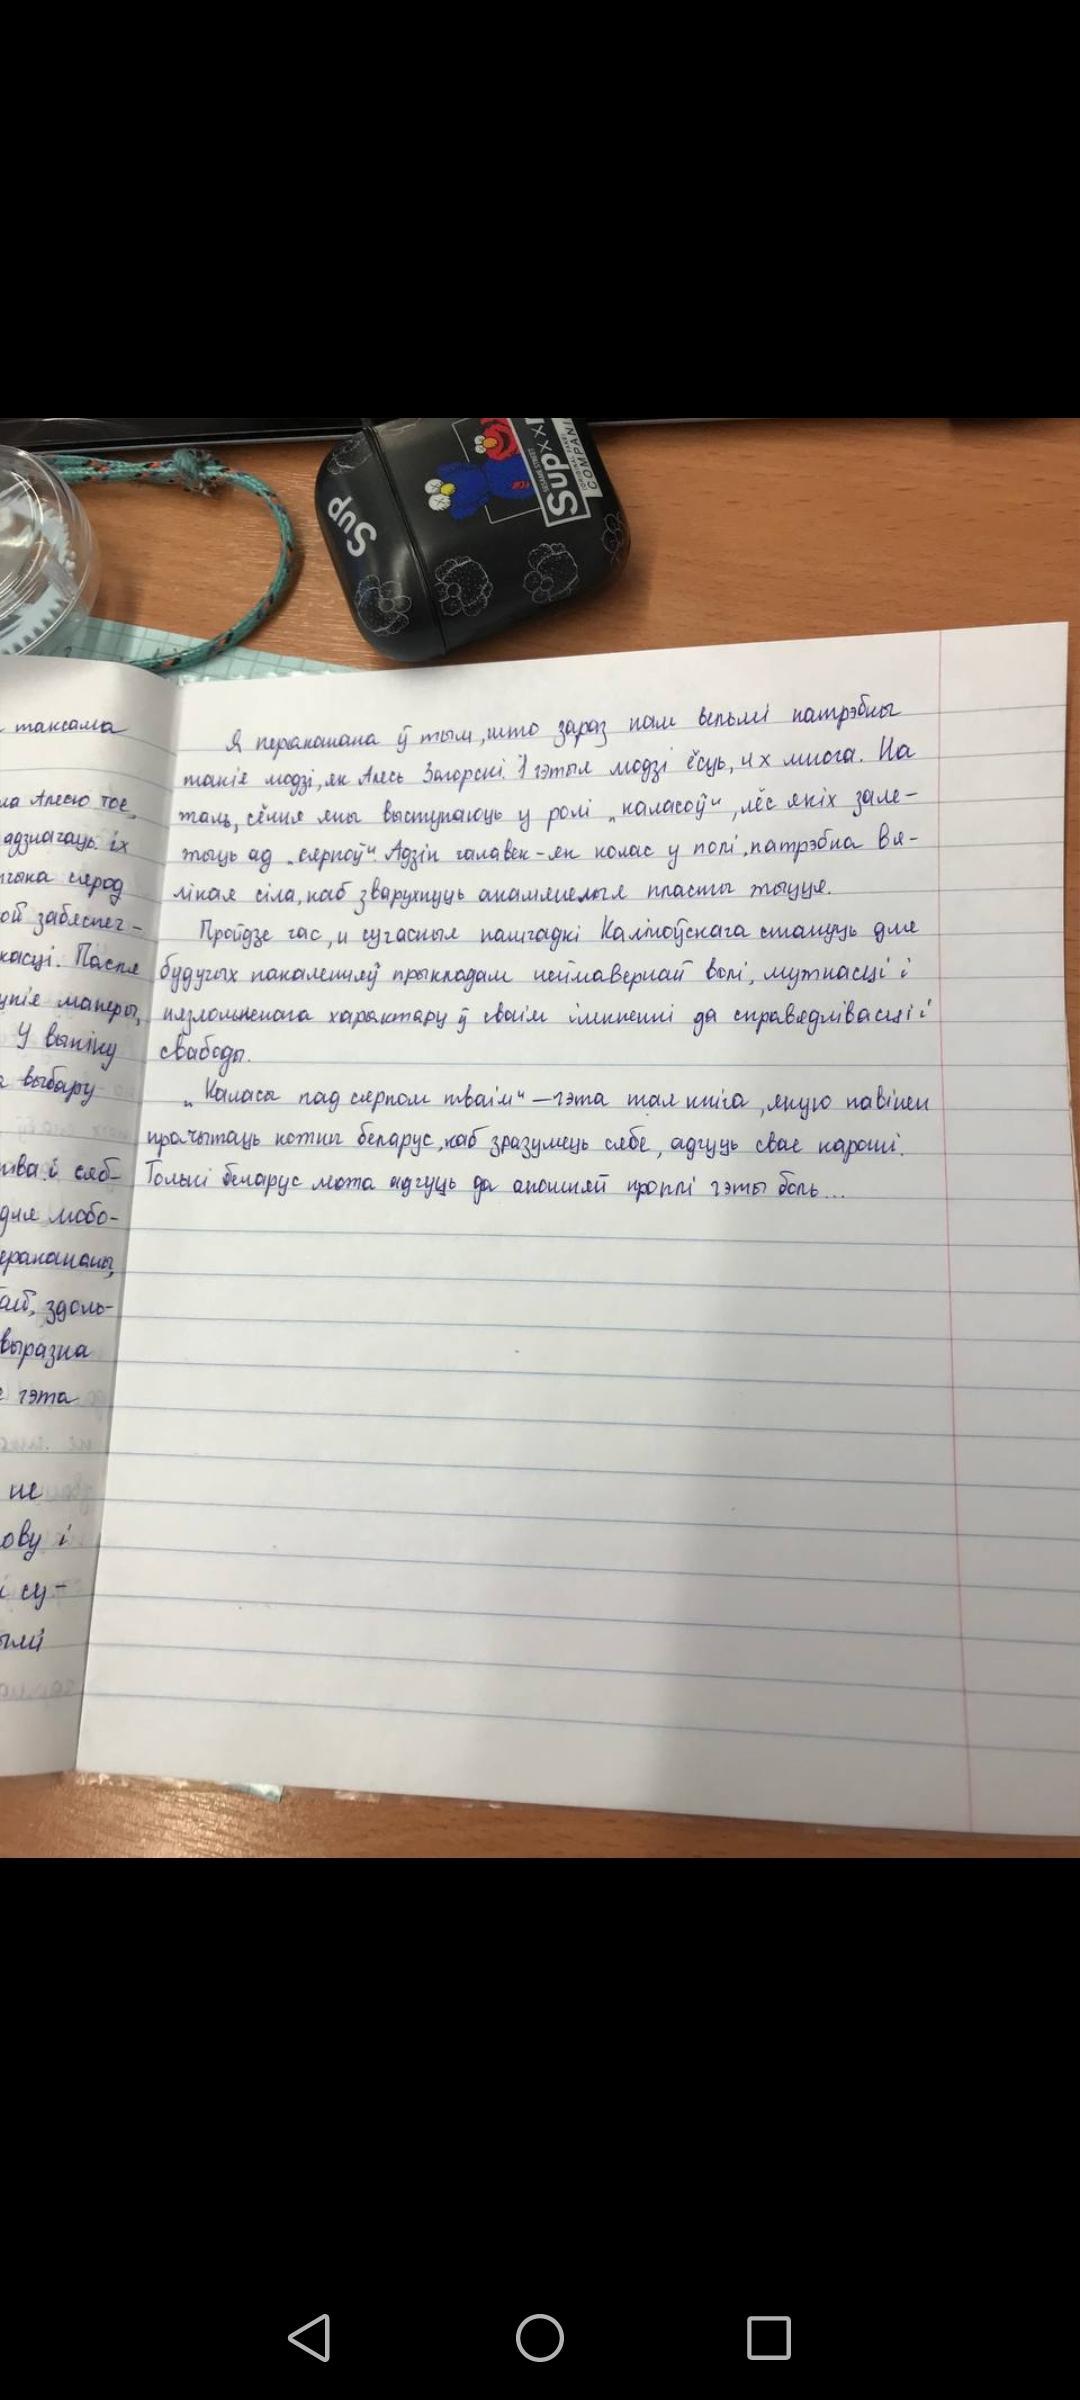 Sup
Sup××
COMPANI
таксама
Алесю тое,
адзначаць іх
сярод
ой забяспеч-
касці. Пасля
манеры,
У выніку
выбару
тва і сяб-
для любо-
еракананы,
здоль-
выразна
гэта
не
ову і
і су-
ымі
Я перакакана ў тым, што зараз нам вельмі патрэбны
такія людзі, як Алесь Загорскі. І гэтыя людзі ёсць, их многа. На
таль, сёння яны выступаюць у ролі „каласоў“, лёс якіх зале-
жыць ад „сярпоў“. Адзін чалавек - як колас у полі, патрэбна вя-
лікая сіла, каб зварухнуць акамянелыя пласты жыцця.
Пройдзе час, и сучасныя нашчадкі Каліноўскага стануць для
будучых пакаленняў прыкладам неймавернай волі, мужнасці і
нязломненага характару ў сваім імкненні да справядлівасці і
свабоды.
„Каласы пад сярпом тваім“ — гэта тая кніга, якую павінен
прачытаць кожны беларус, каб зразумець сябе, адчуць свае карані.
Толькі беларус можа адчуць да апошняй кроплі гэты боль...